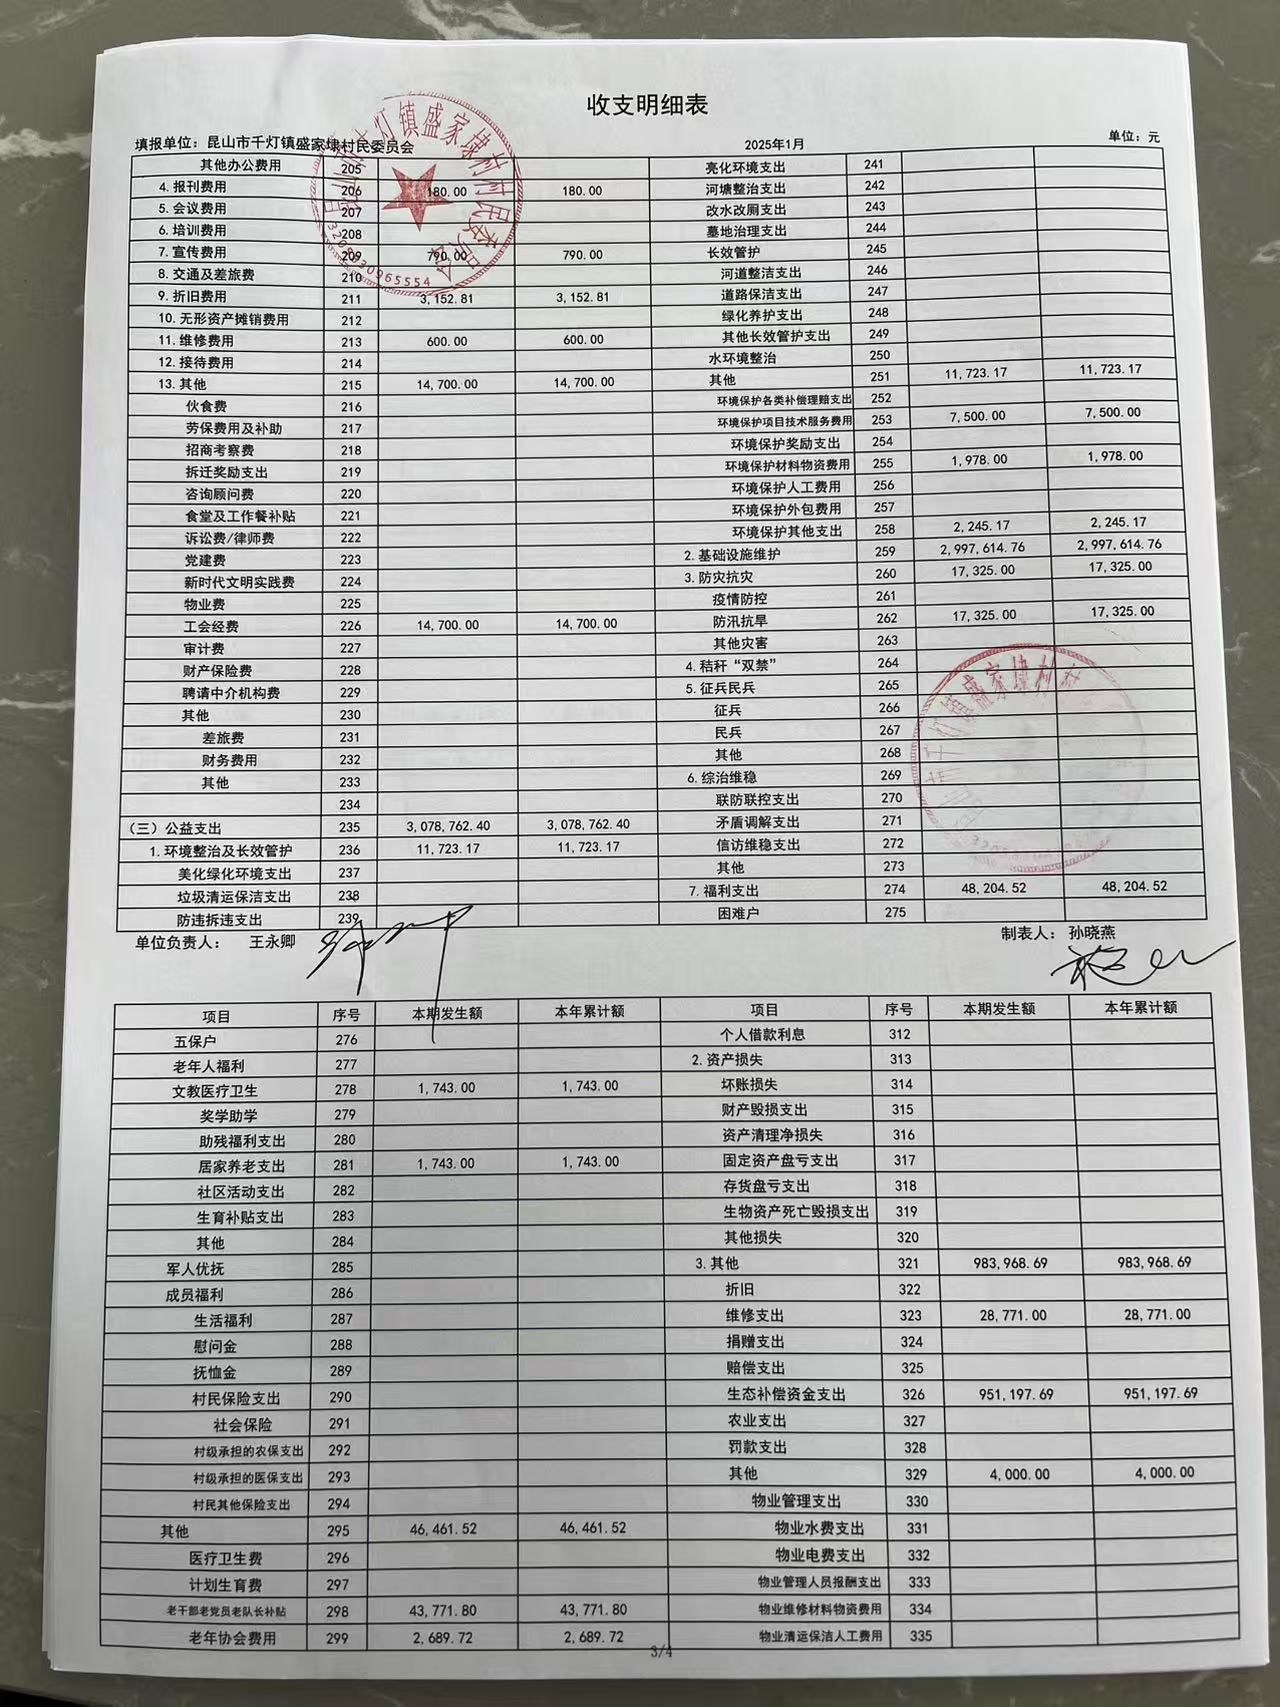 收支明细表
填报单位：昆山市千灯镇盛家埭村民委员会 2025年1月 单位：元
其他办公费用 205 亮化环境支出 241
4. 报刊费用 206 180.00 180.00 河塘整治支出 242
5. 会议费用 207 改水改厕支出 243
6. 培训费用 208 墓地治理支出 244
7. 宣传费用 209 790.00 790.00 长效管护 245
8. 交通及差旅费 210 河道整洁支出 246
9. 折旧费用 211 3,152.81 3,152.81 道路保洁支出 247
10. 无形资产摊销费用 212 绿化养护支出 248
11. 维修费用 213 600.00 600.00 其他长效管护支出 249
12. 接待费用 214 水环境整治 250
13. 其他 215 14,700.00 14,700.00 其他 251 11,723.17 11,723.17
伙食费 216 环境保护各类补偿理赔支出 252
劳保费用及补助 217 环境保护项目技术服务费用 253 7,500.00 7,500.00
招商考察费 218 环境保护奖励支出 254
拆迁奖励支出 219 环境保护材料物资费用 255 1,978.00 1,978.00
咨询顾问费 220 环境保护人工费用 256
食堂及工作餐补贴 221 环境保护外包费用 257
诉讼费/律师费 222 环境保护其他支出 258 2,245.17 2,245.17
党建费 223 2. 基础设施维护 259 2,997,614.76 2,997,614.76
新时代文明实践费 224 3. 防灾抗灾 260 17,325.00 17,325.00
物业费 225 疫情防控 261
工会经费 226 14,700.00 14,700.00 防汛抗旱 262 17,325.00 17,325.00
审计费 227 其他灾害 263
财产保险费 228 4. 秸秆“双禁” 264
聘请中介机构费 229 5. 征兵民兵 265
其他 230 征兵 266
差旅费 231 民兵 267
财务费用 232 其他 268
其他 233 6. 综治维稳 269
234 联防联控支出 270
（三）公益支出 235 3,078,762.40 3,078,762.40 矛盾调解支出 271
1. 环境整治及长效管护 236 11,723.17 11,723.17 信访维稳支出 272
美化绿化环境支出 237 其他 273
垃圾清运保洁支出 238 7. 福利支出 274 48,204.52 48,204.52
防违拆违支出 239 困难户 275
单位负责人： 王永卿 制表人： 孙晓燕
项目 序号 本期发生额 本年累计额 项目 序号 本期发生额 本年累计额
五保户 276 个人借款利息 312
老年人福利 277 2. 资产损失 313
文教医疗卫生 278 1,743.00 1,743.00 坏账损失 314
奖学助学 279 财产毁损支出 315
助残福利支出 280 资产清理净损失 316
居家养老支出 281 1,743.00 1,743.00 固定资产盘亏支出 317
社区活动支出 282 存货盘亏支出 318
生育补贴支出 283 生物资产死亡毁损支出 319
其他 284 其他损失 320
军人优抚 285 3. 其他 321 983,968.69 983,968.69
成员福利 286 折旧 322
生活福利 287 维修支出 323 28,771.00 28,771.00
慰问金 288 捐赠支出 324
抚恤金 289 赔偿支出 325
村民保险支出 290 生态补偿资金支出 326 951,197.69 951,197.69
社会保险 291 农业支出 327
村级承担的农保支出 292 罚款支出 328
村级承担的医保支出 293 其他 329 4,000.00 4,000.00
村民其他保险支出 294 物业管理支出 330
其他 295 46,461.52 46,461.52 物业水费支出 331
医疗卫生费 296 物业电费支出 332
计划生育费 297 物业管理人员报酬支出 333
老干部老党员老队长补贴 298 43,771.80 43,771.80 物业维修材料物资费用 334
老年协会费用 299 2,689.72 2,689.72 物业清运保洁人工费用 335
3/4